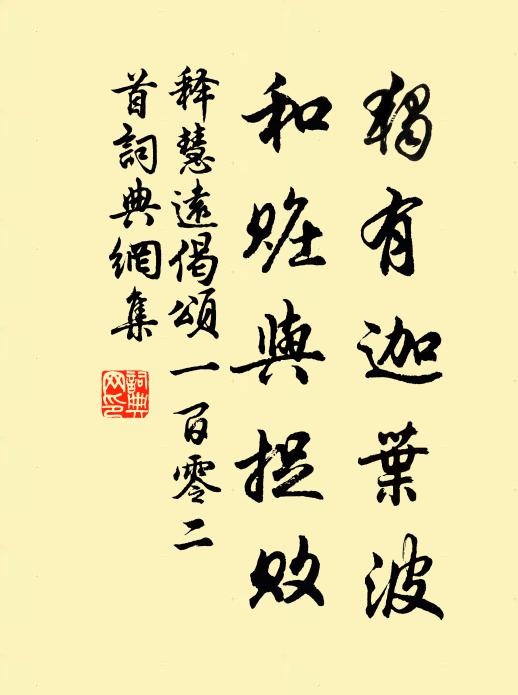 獨有迦葉波
和贓與捉敗
釋慧遠偈頌一百零二
首詞典網集
詞典
网印